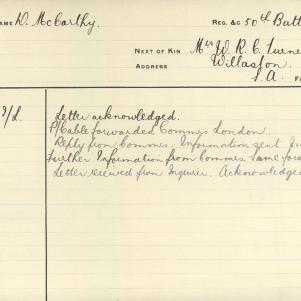 NAME D. McCarthy.
REG. &c 50th Batt
NEXT OF KIN Mrs W. R. C. Turne
ADDRESS Willaston.
S. A.
/L. Letter acknowledged.
P/Cable forwarded Commrs London.
Reply from Commrs. Information sent
Further Information from Commrs. Same for
Letter received from Inquirer. Acknowledged